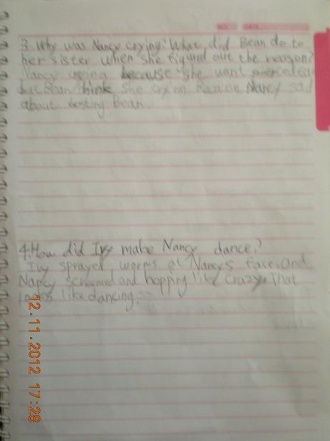 3. Why was Nancy crying? What did Bean do to
her sister when she figurd out the reason?
Nancy crying because she want
but Bean think she cry on Because Nancy sad
about testing bean.
4. How did Ivy make Nancy dance?
Ivy sprayed worms at Nancy's face. And
Nancy screamed and hopping like crazy. That
looks like dancing.
12.11.2012 17:28